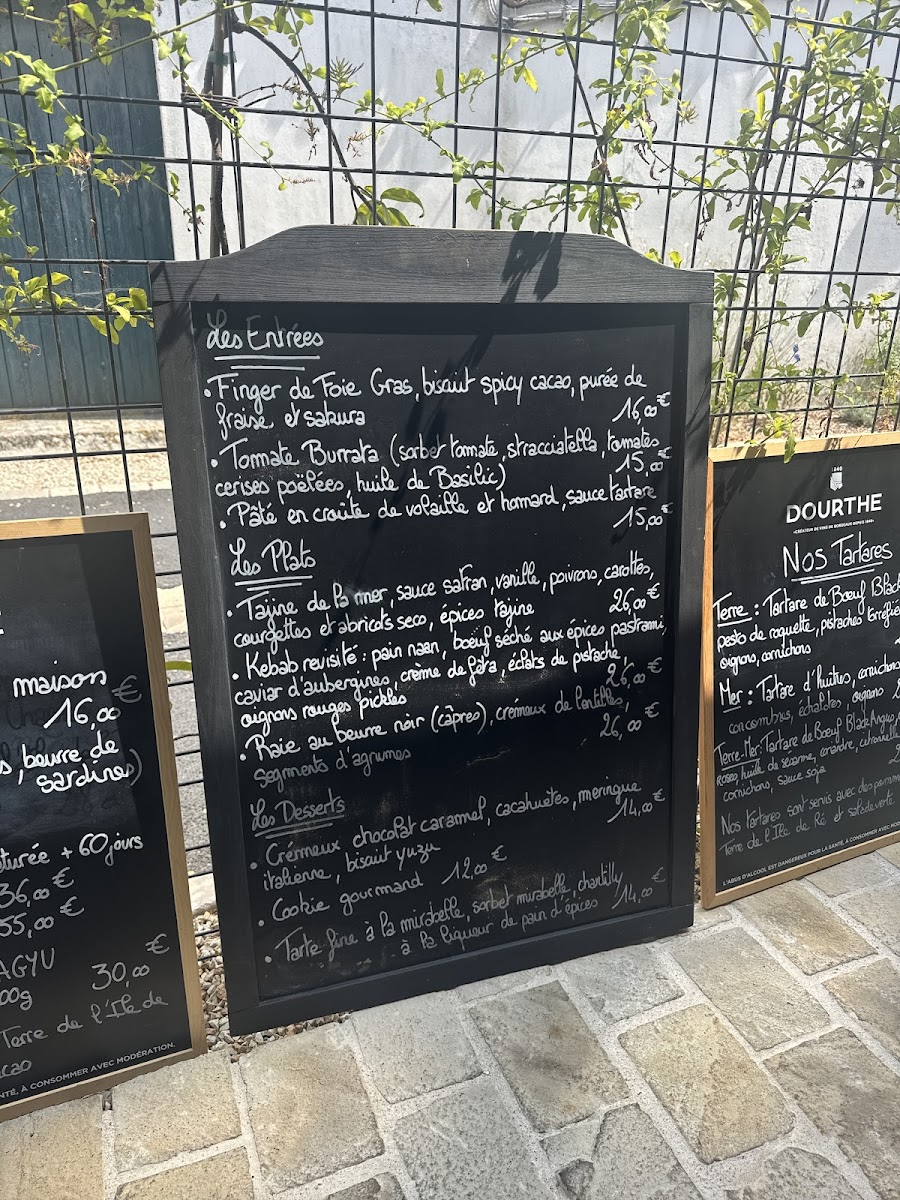 Les Entrées
• Finger de Foie Gras, biscuit spicy cacao, purée de
fraise et sakura
16,00€
• Tomate Burrata (sorbet tomate, stracciatella, tomates
cerises poëlées, huile de Basilic)
15,00€
• Pâté en croûte de volaille et homard, sauce tartare
15,00€
Les Plats
• Tajine de la mer, sauce safran, vanille, poivrons, carottes,
courgettes et abricots secs, épices tajine
26,00€
• Kebab revisité : pain naan, bœuf séché aux épices pastrami,
caviar d'aubergines, crème de féta, éclats de pistache,
oignons rouges pickles
26,00€
• Raie au beurre noir (câpres), cremeux de lentilles,
segments d'agrumes
26,00€
Les Desserts
• Crémeux chocolat caramel, cacahuètes, meringue
italienne, biscuit yuzu
14,00€
• Cookie gourmand 12,00€
• Tarte fine à la mirabelle, sorbet mirabelle, chantilly
à la liqueur de pain d'épices 14,00€
maison
16,00€
, beurre de
sardines)
+ 60 jours
36,00€
55,00€
30,00€
Terre de l'Ile de
À CONSOMMER AVEC MODÉRATION.
DOURTHE
Nos Tartares
Terre : Tartare de Bœuf Black
pesto de roquette, pistaches
oignons, cornichons
Mer : Tartare d'huitres, cornichons
concombres, échalotes, oignons
Terre-Mer: Tartare de Bœuf Black Angus,
huile de sésame, coriandre, citronnelle
cornichons, sauce soja
Nos tartares sont servis avec des pomme
Terre de l'Ile de Ré et salade verte
L'ABUS D'ALCOOL EST DANGEREUX POUR LA SANTÉ, À CONSOMMER AVEC